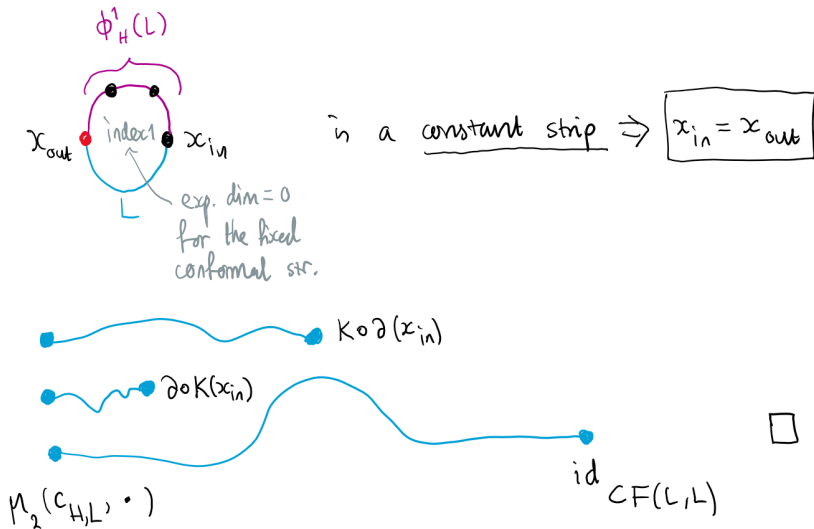 ϕ¹_H(L)
x_out index1 x_in is a constant strip ⇒ x_in = x_out
L
exp. dim = 0
for the fixed
conformal str.
K∘∂(x_in)
∂∘K(x_in)
id
μ₂(C_{H,L}, ·) CF(L,L)